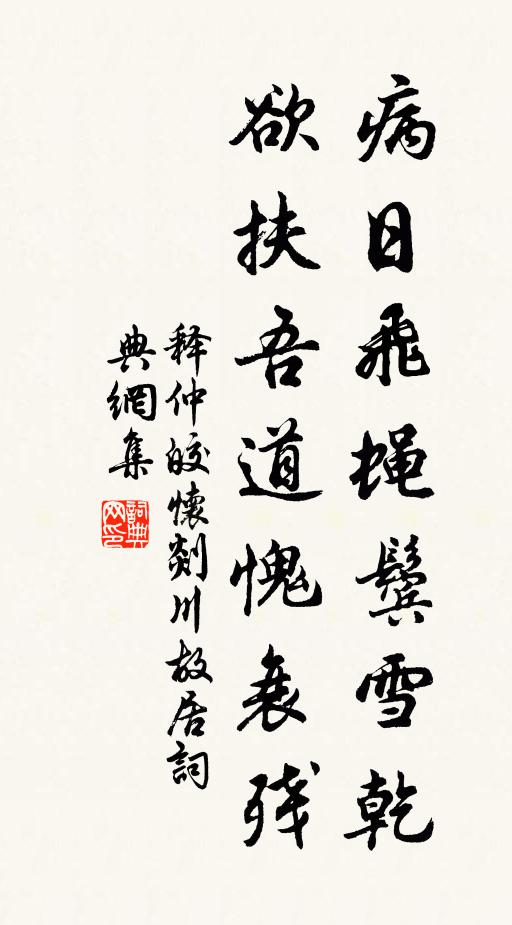 病日飛蝇鬓雪乾
欲扶吾道愧衰残
释仲皎懷剡川故居詞
典網集
詞典网印